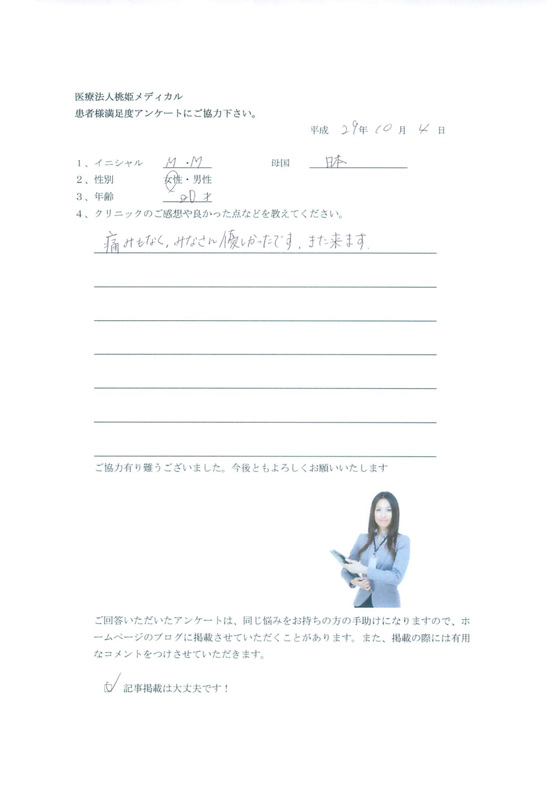 医療法人桃姫メディカル
患者様満足度アンケートにご協力下さい。
平成 29年 10月 4日
1、イニシャル M・M 母国 日本
2、性別 女性・男性
3、年齢 20才
4、クリニックのご感想や良かった点などを教えてください。
痛みもなく、みなさん優しかったです。また来ます。
ご協力有り難うございました。今後ともよろしくお願いいたします
ご回答いただいたアンケートは、同じ悩みをお持ちの方の手助けになりますので、ホ
ームページのブログに掲載させていただくことがあります。また、掲載の際には有用
なコメントをつけさせていただきます。
☑ 記事掲載は大丈夫です！